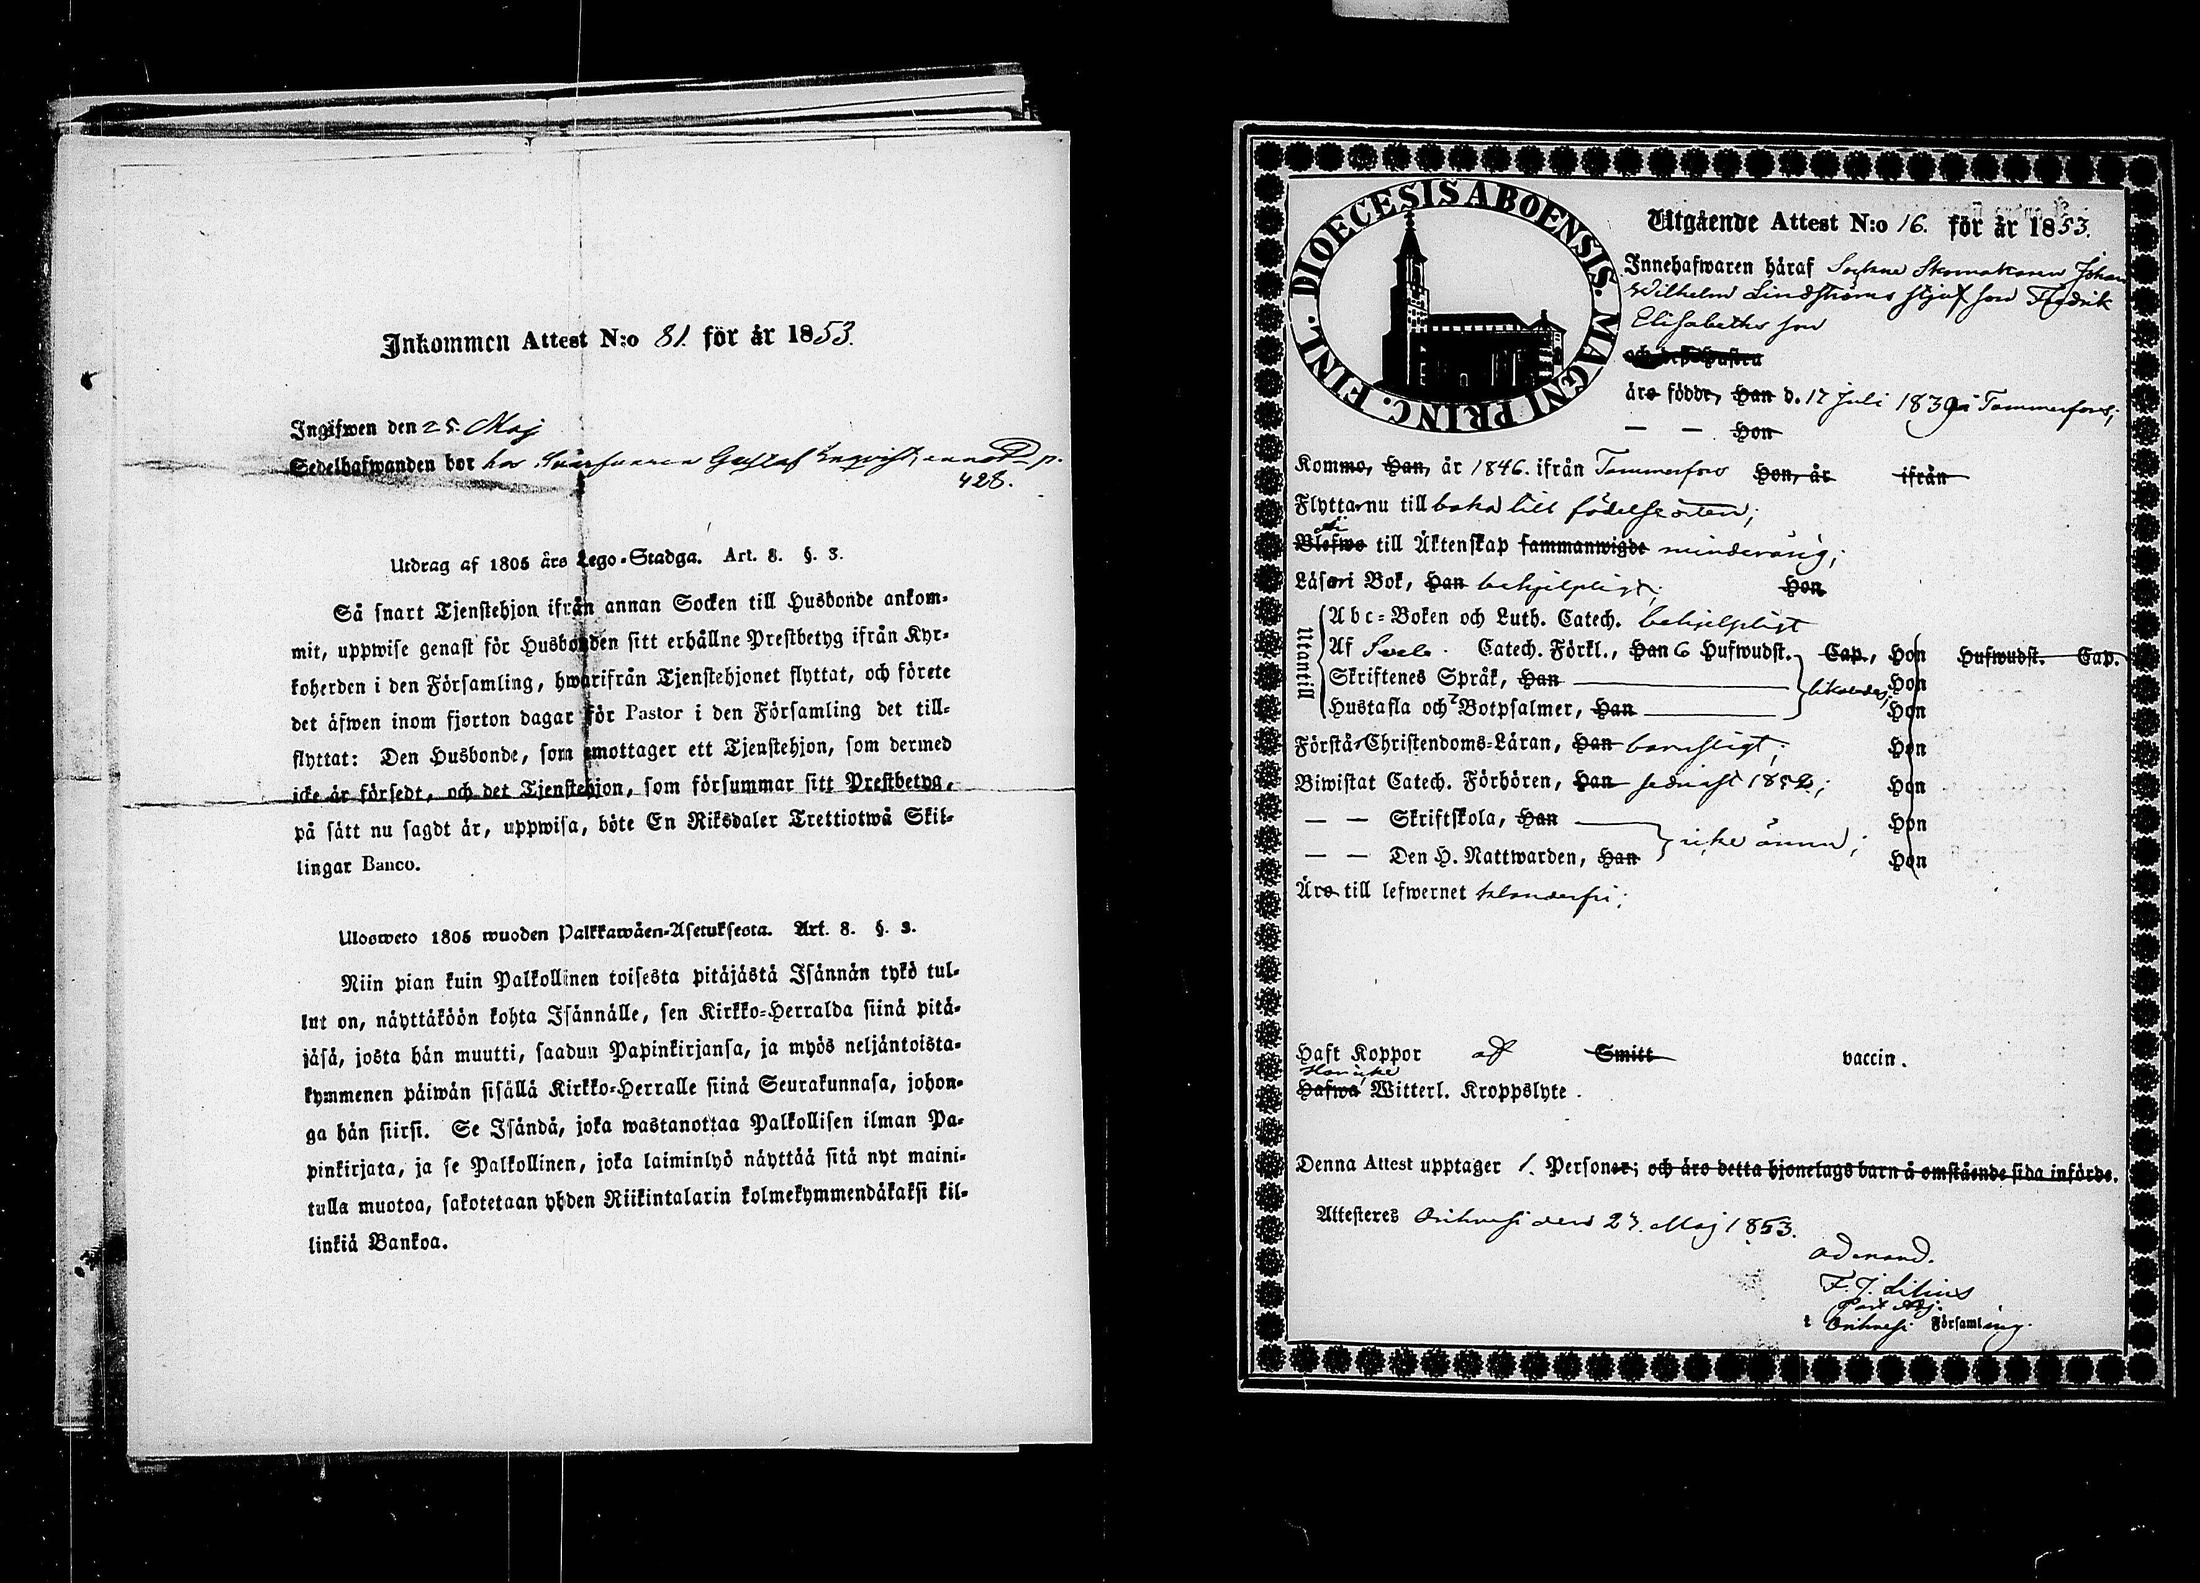 Inkommen Attest N:o 81 för år 1853.
Ingifwen den 25. Maj
Sedelhafwanden bor hos Gustaf p.
428.
Utdrag af 1805 års Lego-Stadga. Art. 8. §. 3.
Så snart Tjenstehjon ifrån annan Socken till Husbonde ankom-
mit, uppwise genast för Husbonden sitt erhållne Prestbetyg ifrån Kyr-
koherden i den Församling, hwarifrån Tjenstehjonet flyttat, och förete
det äfwen inom fjorton dagar för Pastor i den Församling det till-
flyttat: Den Husbonde, som emottager ett Tjenstehjon, som dermed
icke är försedt, och det Tjenstehjon, som försummar sitt Prestbetyg,
på sätt nu sagdt är, uppwisa, böte En Riksdaler Trettiotwå Skil-
lingar Banco.
Ulosweto 1805 wuoden Palkkawäen-Asetuksesta. Art. 8. §. 3.
Niin pian kuin Palkollinen toisesta pitäjästä Isännän tykö tul-
lut on, näyttäköön kohta Isännälle, sen Kirkko-Herralda siinä pitä-
jäsä, josta hän muutti, saadun Papinkirjansa, ja myös neljäntoista-
kymmenen päiwän sisällä Kirkko-Herralle siinä Seurakunnasa, johon-
ga hän siirsi. Se Isändä, joka wastanottaa Palkollisen ilman Pa-
pinkirjata, ja se Palkollinen, joka laiminlyö näyttää sitä nyt maini-
tulla muotoa, sakotetaan yhden Riikintalarin kolmekymmendäkaksi kil-
linkiä Bankoa.
DIOECESIS ABOENSIS. MAGNI PRINC. FINL.
Utgående Attest N:o 16. för år 1853.
Innehafwaren häraf Sockne Skomakaren Johan
Wilhelm Lindströms stjuf son Fredrik
Elisabeths son
och dess hustru
äro födde, Han d. 17 Juli 1839 i Tammerfors;
— — Hon
Kommo, Han, år 1846. ifrån Tammerfors Hon, år ifrån
Flytta nu till baka till födelseorten;
Blefwo till Äktenskap sammanwigde minderårig;
Läsa i Bok, Han behjelpligt; Hon
Utantill
Abc-Boken och Luth. Catech. behjelpligt
Af Sveb. Catech. Förkl., Han 6 Hufwudst. Cap., Hon Hufwudst. Cap.
Skriftenes Språk, Han likaledes; Hon
Hustafla och 7 Botpsalmer, Han Hon
Förstå Christendoms-Läran, Han barnsligt; Hon
Biwistat Catech. Förhören, Han sednast 1852; Hon
— — Skriftskola, Han Hon
— — Den H. Nattwarden, Han icke ännu; Hon
Äro till lefwernet klanderfri;
Haft Koppor af Smitt vaccin.
Har icke
Hafwa Witterl. Kroppslyte.
Denna Attest upptager 1. Personer; och äro detta hjonelags barn å omstående sida införde.
Attesteres Orihvesi den 23. Maj 1853.
ad mand.
F. J. Lilius
Past. Adj.
i Orihvesi Församling.